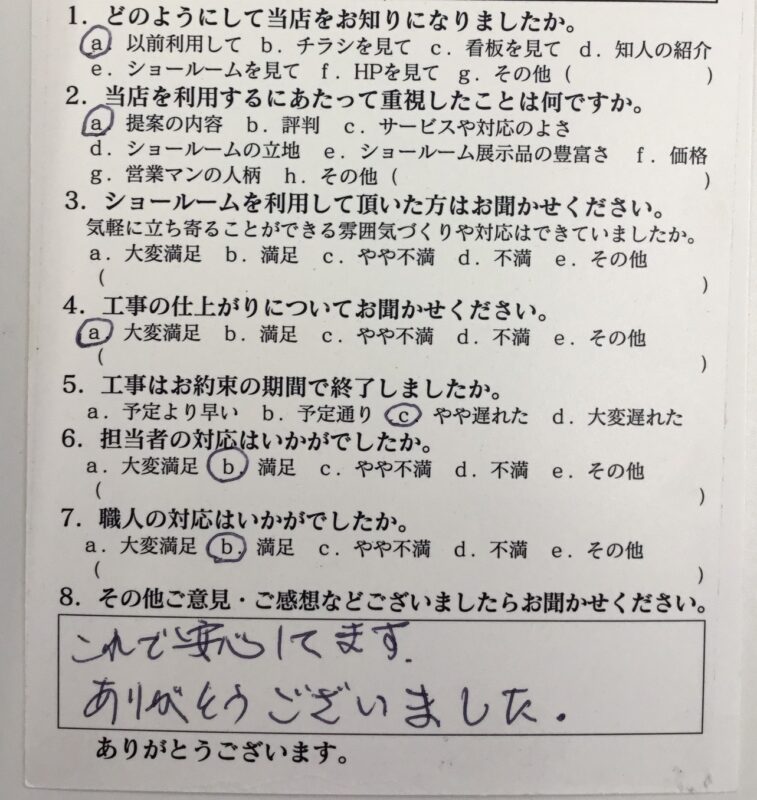 1. どのようにして当店をお知りになりましたか。
a. 以前利用して b. チラシを見て c. 看板を見て d. 知人の紹介
e. ショールームを見て f. HPを見て g. その他 ( )
2. 当店を利用するにあたって重視したことは何ですか。
a. 提案の内容 b. 評判 c. サービスや対応のよさ
d. ショールームの立地 e. ショールーム展示品の豊富さ f. 価格
g. 営業マンの人柄 h. その他 ( )
3. ショールームを利用して頂いた方はお聞かせください。
気軽に立ち寄ることができる雰囲気づくりや対応はできていましたか。
a. 大変満足 b. 満足 c. やや不満 d. 不満 e. その他
( )
4. 工事の仕上がりについてお聞かせください。
a. 大変満足 b. 満足 c. やや不満 d. 不満 e. その他
( )
5. 工事はお約束の期間で終了しましたか。
a. 予定より早い b. 予定通り c. やや遅れた d. 大変遅れた
6. 担当者の対応はいかがでしたか。
a. 大変満足 b. 満足 c. やや不満 d. 不満 e. その他
( )
7. 職人の対応はいかがでしたか。
a. 大変満足 b. 満足 c. やや不満 d. 不満 e. その他
( )
8. その他ご意見・ご感想などございましたらお聞かせください。
これで安心してます.
ありがとうございました.
ありがとうございます。